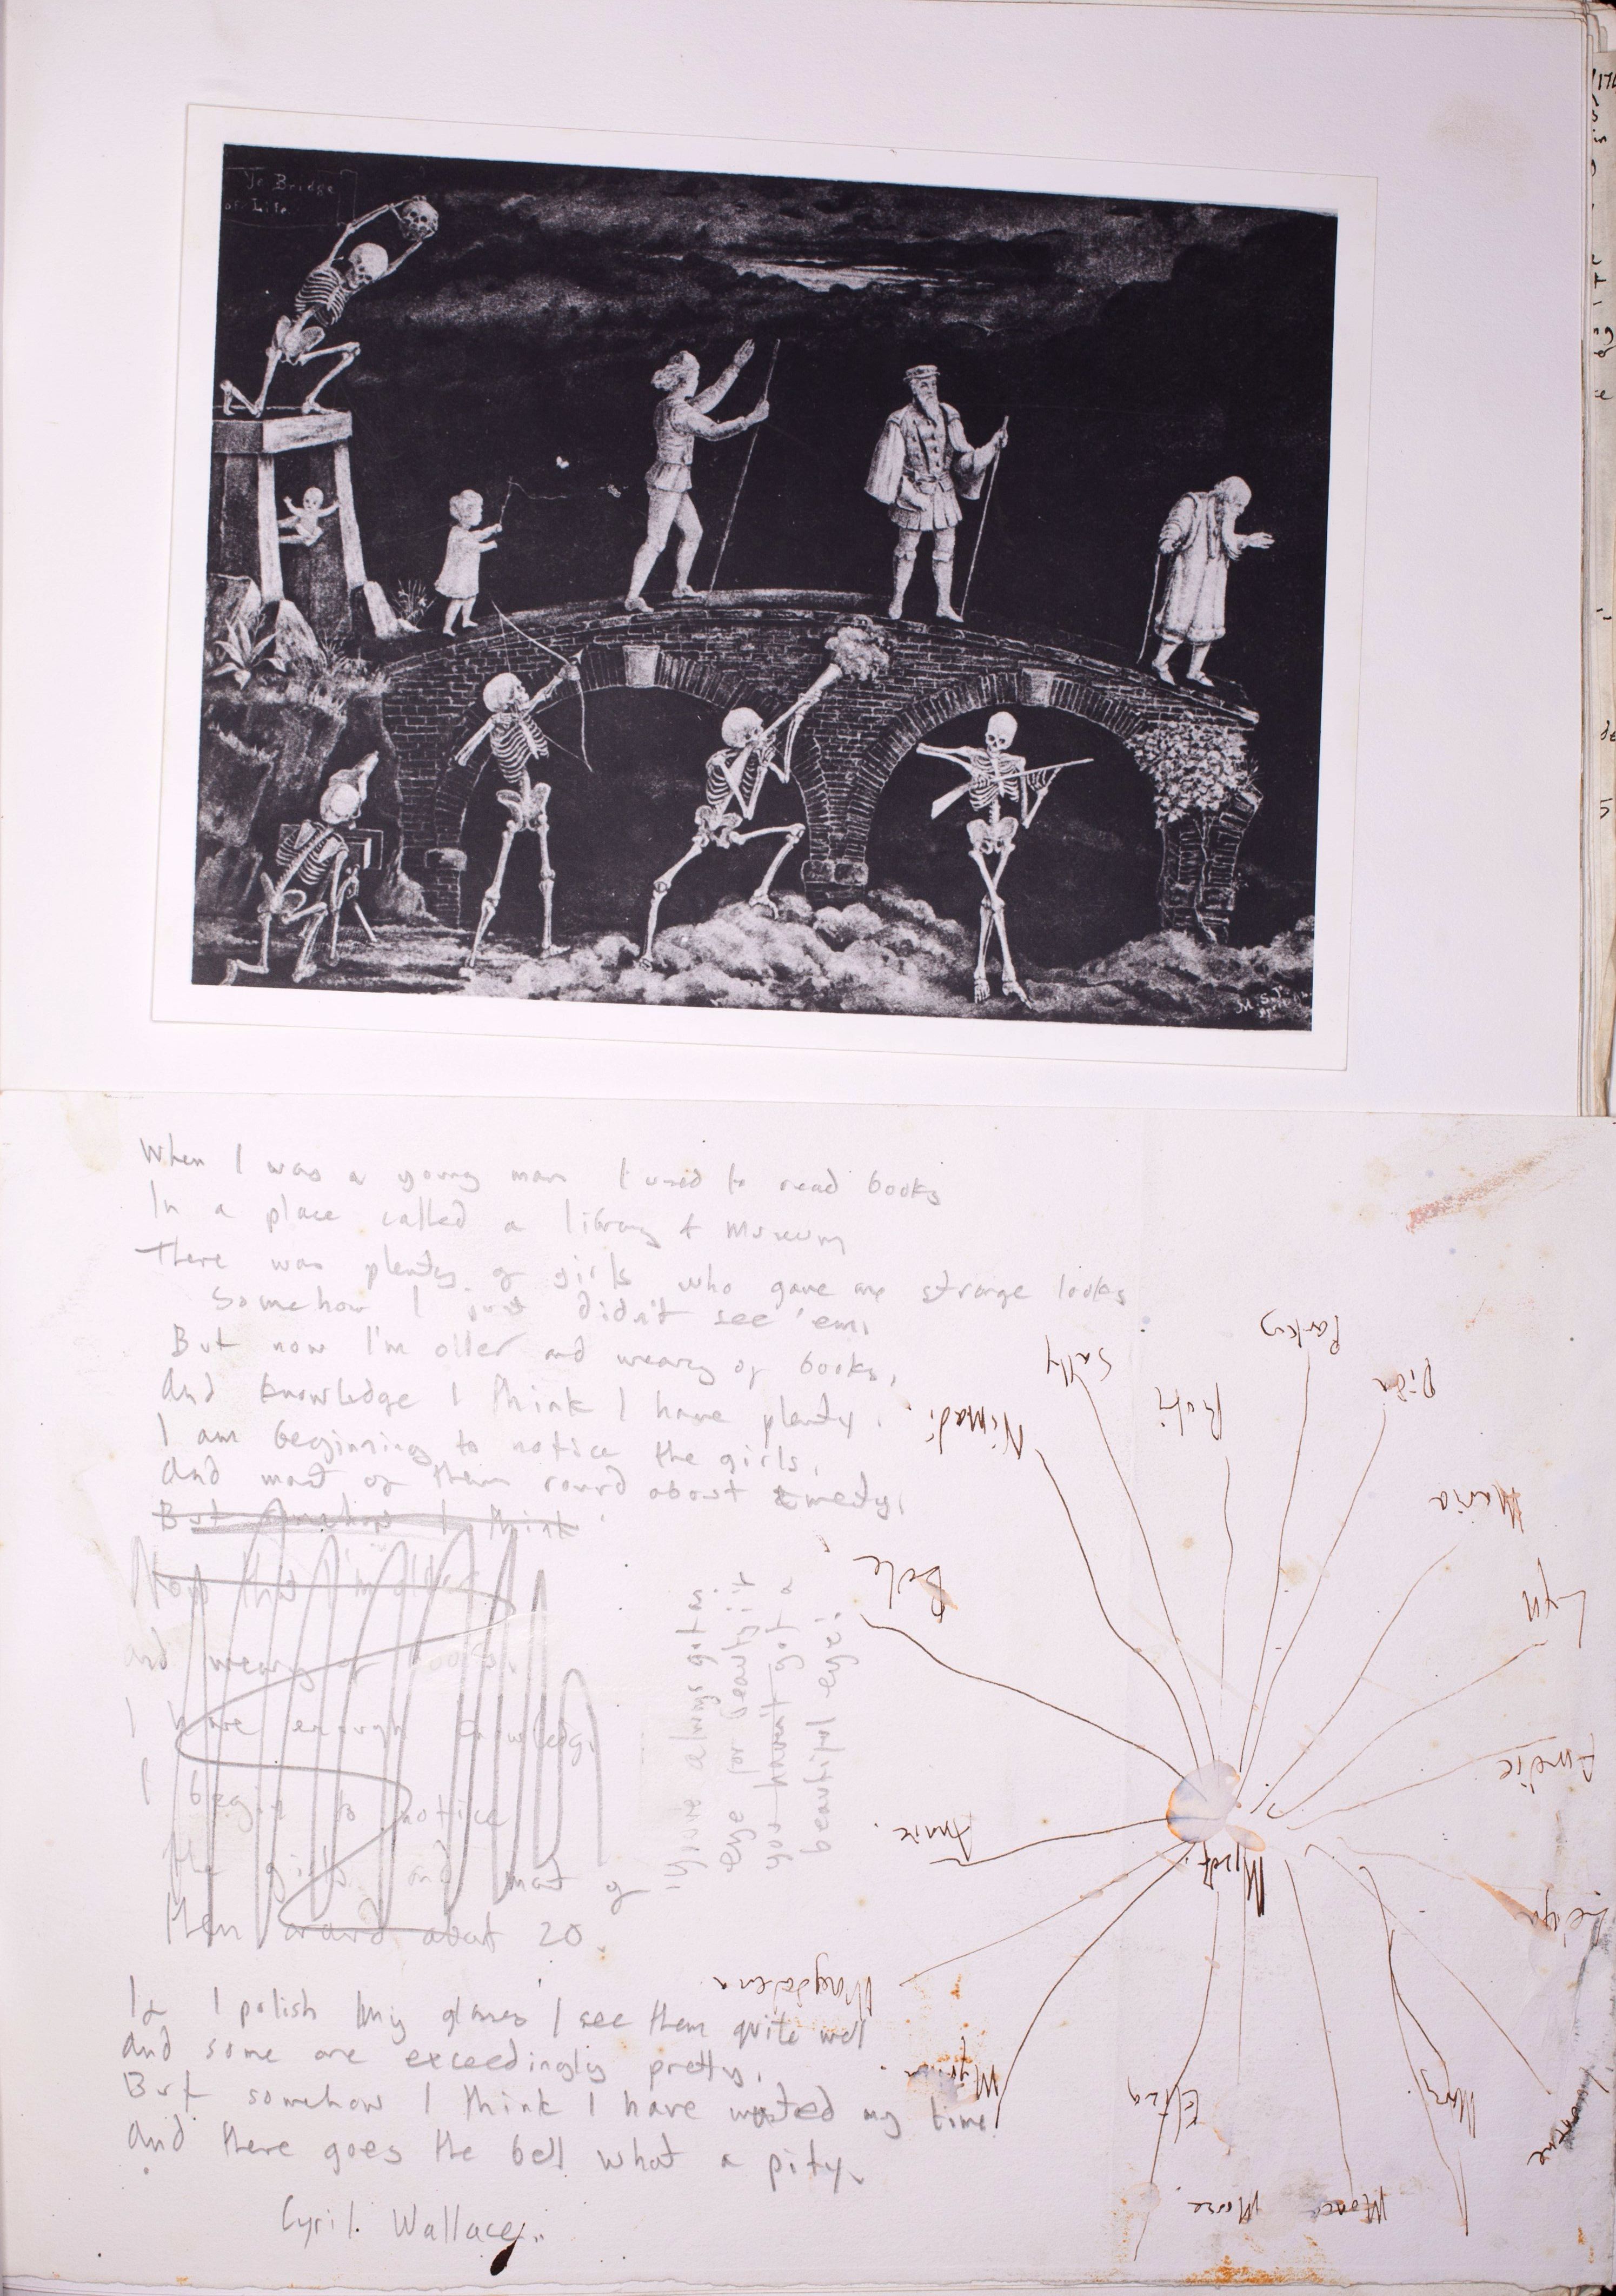 Ye Bridge
of Life
When I was a young man I used to read books
In a place called a library & museum
There was plenty of girls who gave me strange looks
Somehow I just didn't see 'em,
But now I'm older and weary of books,
and knowledge I think I have plenty.
I am beginning to notice the girls,
and most of them round about twenty,
But somehow I think
Now that I'm older
and weary of books,
I have enough knowledge
I begin to notice
the girls and most of
them around about 20.
If I polish my glasses I see them quite well
and some are exceedingly pretty.
But somehow I think I have wasted my time.
and there goes the bell what a pity.
Cyril. Wallace.
"You've always got an
eye for beauty, it's
you haven't got a
beautiful eye!
Parking
Sally
Ruti
Nimadi
Maria
Lyn
Belle
Amelie
Annie.
Myself.
Magdalena
Myriam.
Eliza
Mary.
Moose.
Monica